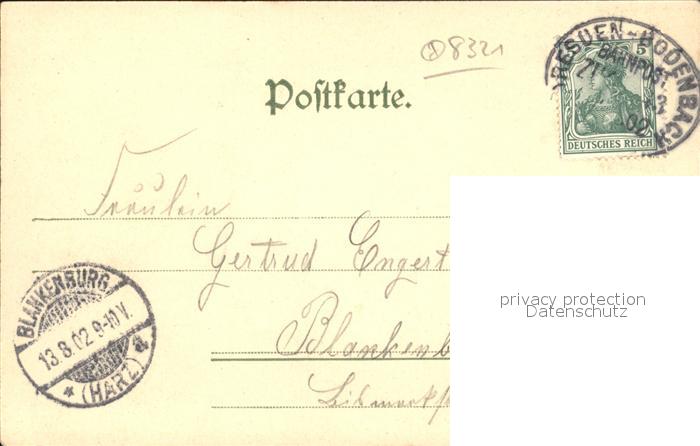 8321
DRESDEN-BODENBACH
BAHNPOST
5
02
DEUTSCHES REICH
Postkarte.
Fräulein
Gertrud Engert
Blankenb
BLANKENBURG
13.8.02 9-10 V.
* (HARZ) a
privacy protection
Datenschutz